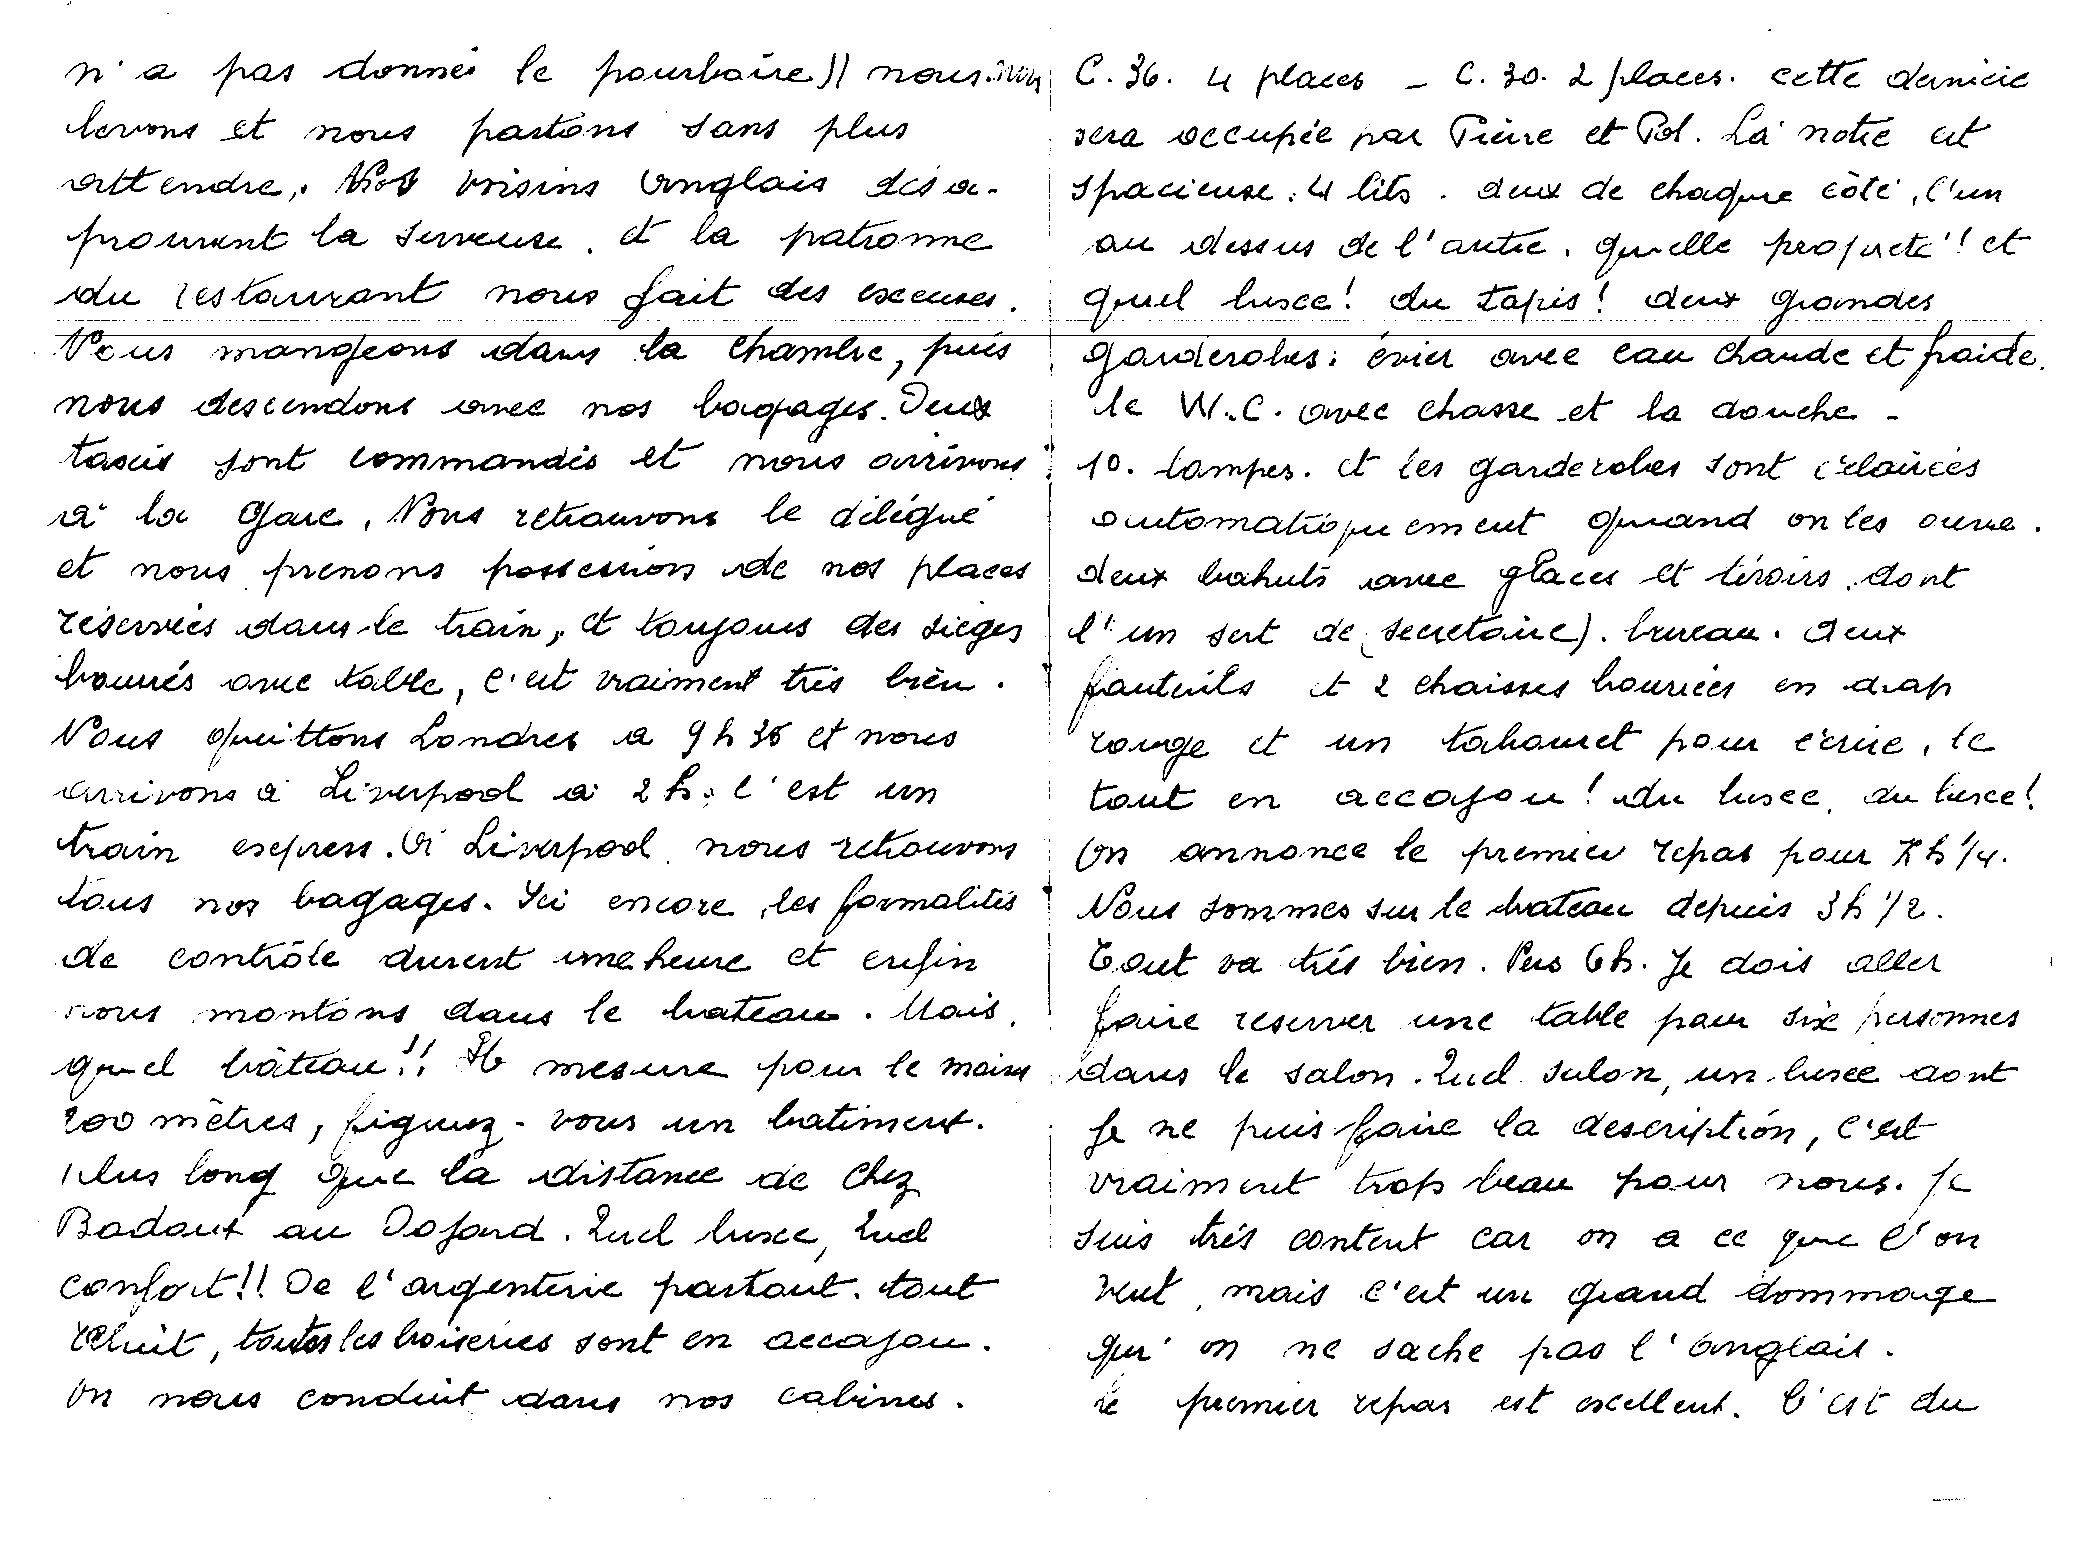 n'a pas donné le pourboire)) nous nous
levons et nous partons sans plus
attendre. Nos voisins anglais désa-
prouvent la serveuse. et la patronne
du restaurant nous fait des excuses.
Nous mangeons dans la chambre, puis
nous descendons avec nos bagages. Deux
taxis sont commandés et nous arrivons
à la gare. Nous retrouvons le délégué
et nous prenons possession de nos places
réservées dans le train, et toujours des sièges
bourrés avec table, c'est vraiment très bien.
Nous quittons Londres a 9 h et nous
arrivons à Liverpool à 2 h. c'est un
train express. à Liverpool nous retrouvons
tous nos bagages. Ici encore, les formalités
de contrôle durent une heure et enfin
nous montons dans le bateau. Mais,
quel bâteau!! Il mesure pour le moins
200 mètres, figurez-vous un batiment.
plus long que la distance de chez
Badoux au Dofond. Quel luxe, Quel
confort!! De l'argenterie partout. tout
reluit, toutes les boiseries sont en accajou.
On nous conduit dans nos cabines.
C. 36. 4 places - C. 30. 2 places. cette dernière
sera occupée par Pierre et Pol. La notre est
spacieuse. 4 lits. deux de chaque côté, l'un
au dessus de l'autre. quelle propreté! et
quel luxe! du tapis! deux grandes
garderobes: évier avec eau chaude et froide.
le W.C. avec chasse et la douche -
10. lampes. et les garderobes sont éclairées
automatiquement quand on les ouvre.
deux bahuts avec glaces et tiroirs. dont
l'un sert de (secretaire). bureau. deux
fauteuils et 2 chaises bourrées en drap
rouge et un tabouret pour écrire, le
tout en accajou! du luxe, du luxe!
On annonce le premier repas pour h 1/4.
Nous sommes sur le bateau depuis 3h 1/2.
Tout va très bien. Vers 6h. Je dois aller
faire reserver une table pour six personnes
dans le salon. Quel salon, un luxe dont
Je ne puis faire la description, c'est
vraiment trop beau pour nous. Je
suis très content car on a ce que l'on
veut, mais c'est un grand dommage
qu'on ne sache pas l'anglais.
le premier repas est excellent. C'est du